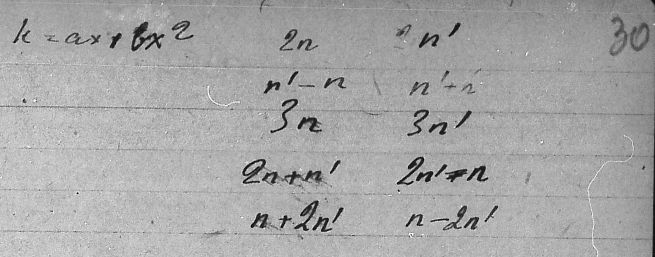 k = ax + bx² 2n 2n' 30
n'-n n'+n
3n 3n'
2n+n' 2n'+n
n+2n' n-2n'